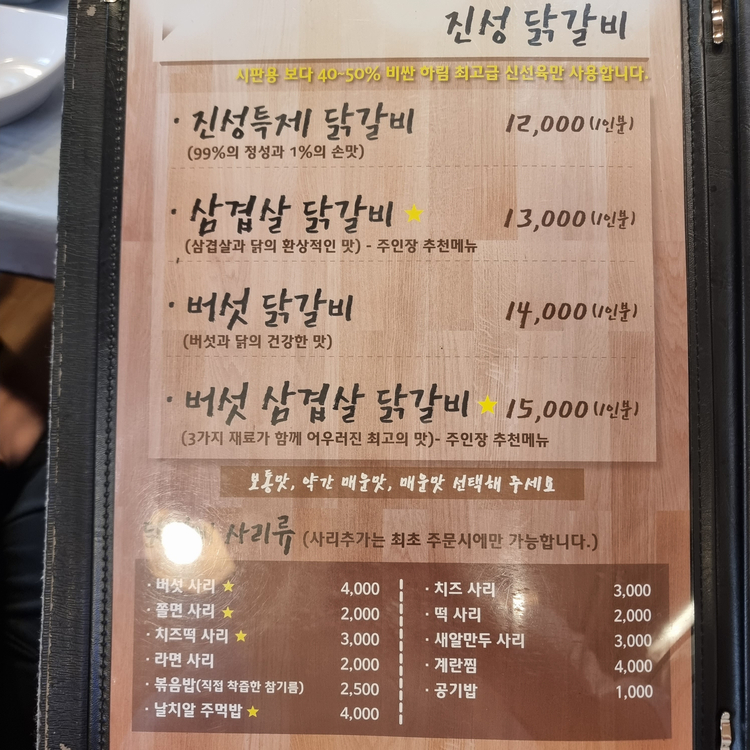 진성 닭갈비
시판용 보다 40~50% 비싼 하림 최고급 신선육만 사용합니다.
· 진성특제 닭갈비 12,000 (1인분)
(99%의 정성과 1%의 손맛)
· 삼겹살 닭갈비 ★ 13,000 (1인분)
(삼겹살과 닭의 환상적인 맛) - 주인장 추천메뉴
· 버섯 닭갈비 14,000 (1인분)
(버섯과 닭의 건강한 맛)
· 버섯 삼겹살 닭갈비 ★ 15,000 (1인분)
(3가지 재료가 함께 어우러진 최고의 맛)- 주인장 추천메뉴
보통맛, 약간 매운맛, 매운맛 선택해 주세요
사리류 (사리추가는 최초 주문시에만 가능합니다.)
· 버섯 사리 ★ 4,000
· 쫄면 사리 ★ 2,000
· 치즈떡 사리 ★ 3,000
· 라면 사리 2,000
· 볶음밥(직접 착즙한 참기름) 2,500
· 날치알 주먹밥 ★ 4,000
· 치즈 사리 3,000
· 떡 사리 2,000
· 새알만두 사리 3,000
· 계란찜 4,000
· 공기밥 1,000